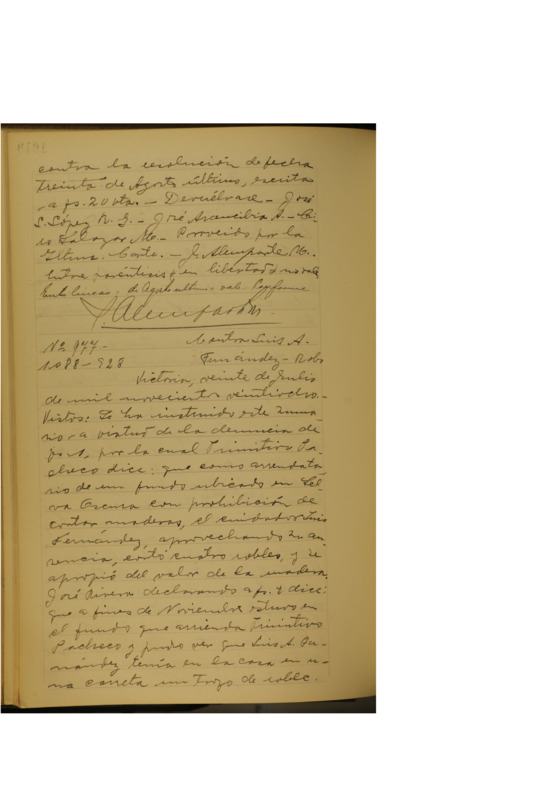 contra la resolución de fecha
treinta de Agosto último, escrita
a fs. 20 vta. - Devuélvase - José
S. López R. G. - José Arancibia A. -
Salazar Mo. - Proveído por la
Iltma. Corte. - J. Alemparte M.
Entre paréntesis, en libertad, no vale
Entre líneas: de Agricultura: vale. Conforme
J. Alemparte M.
No 977 -
Contra Luis A.
1088 - 928
Fernández - Robo
Victoria, veinte de Julio
de mil novecientos veintiocho. -
Vistos: Se ha instruido este suma-
rio a virtud de la denuncia de
fs. 1, por la cual Primitivo Pa-
checo dice: que como arrendata-
rio de un fundo ubicado en Sel-
va Oscura con prohibición de
cortar maderas, el cuidador Luis
Fernández, aprovechando su au-
sencia, cortó cuatro robles, y se
apropió del valor de la madera.
José Rivera declarando a fs. dice:
que a fines de Noviembre estuvo en
el fundo que arrienda Primitivo
Pacheco y pudo ver que Luis A. Fer-
nández tenía en la casa en u-
na carreta un trozo de roble.